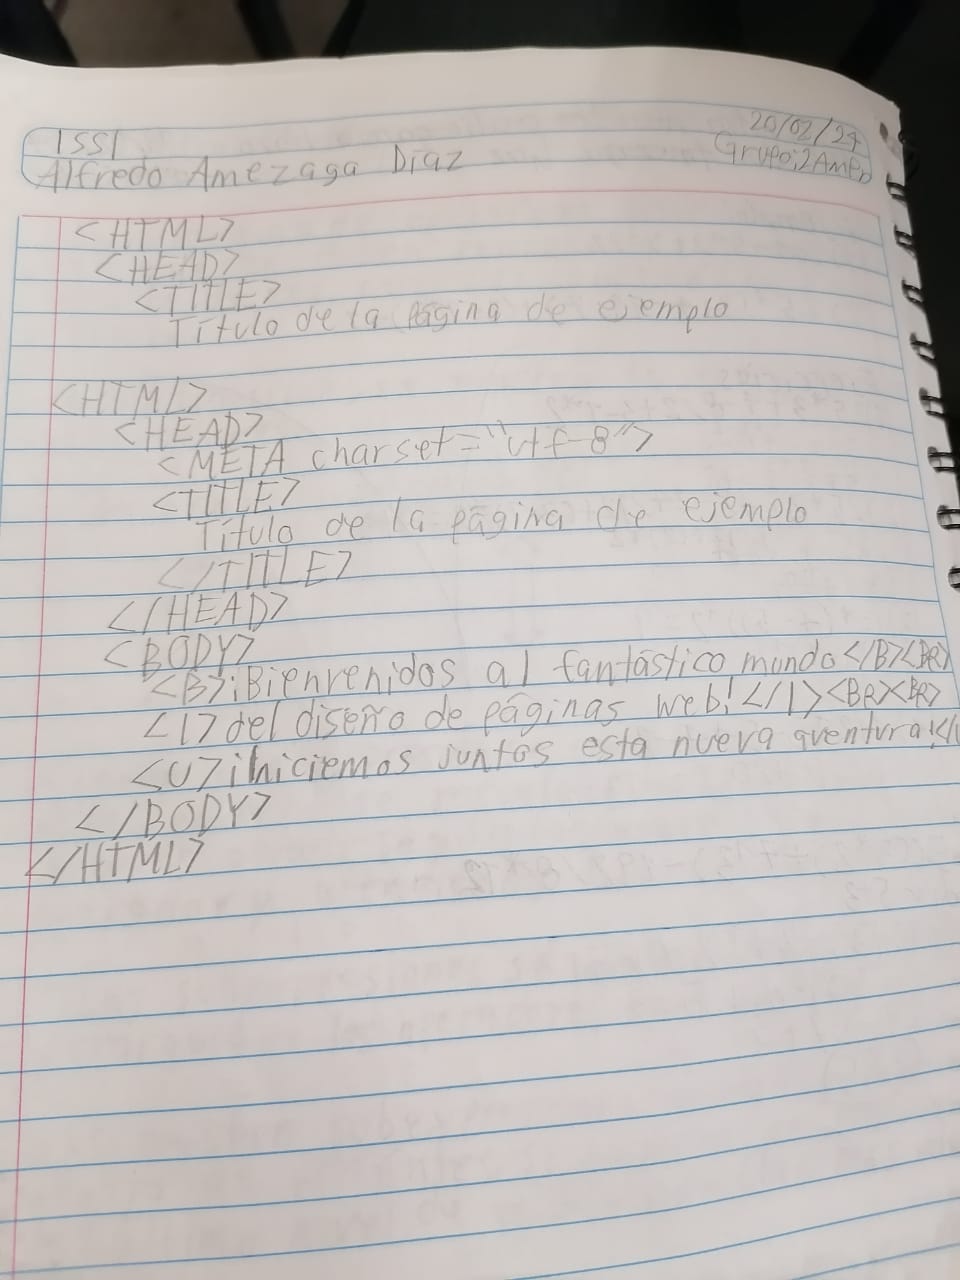 ISSI
20/02/24
Alfredo Amezaga Díaz
Grupo:2AMEP
<HTML>
<HEAD>
<TITLE>
Título de la Página de ejemplo
<HTML>
<HEAD>
<META charset="utf-8">
<TITLE>
Título de la página de ejemplo
</TITLE>
</HEAD>
<BODY>
<B>¡Bienvenidos al fantástico mundo</B><BR>
<I>del diseño de páginas web!</I><BR><BR>
<U>¡Iniciemos juntos esta nueva aventura!</U
</BODY>
</HTML>